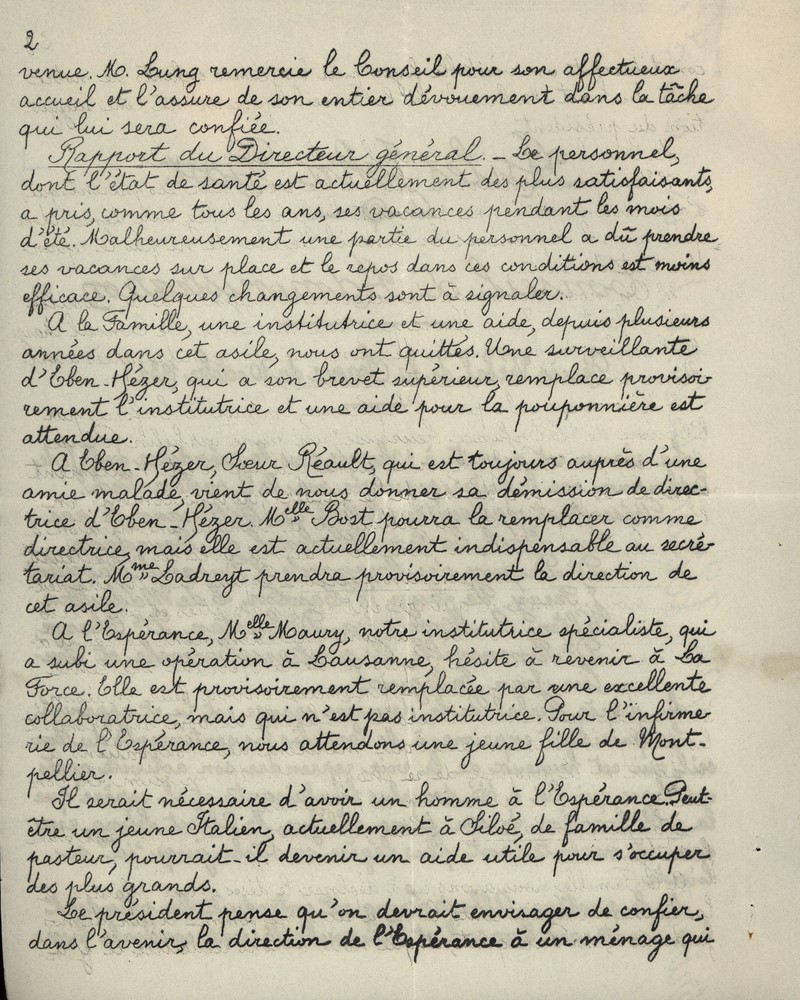 2
venue. M. Lung remercie le Conseil pour son affectueux
accueil et l'assure de son entier dévouement dans la tâche
qui lui sera confiée.
Rapport du Directeur général. – Le personnel,
dont l'état de santé est actuellement des plus satisfaisants,
a pris, comme tous les ans, ses vacances pendant les mois
d'été. Malheureusement une partie du personnel a dû prendre
ses vacances sur place et le repos dans ces conditions est moins
efficace. Quelques changements sont à signaler.
A la Famille, une institutrice et une aide, depuis plusieurs
années dans cet asile, nous ont quittés. Une surveillante
d'Eben-Hézer, qui a son brevet supérieur, remplace provisoi-
rement l'institutrice et une aide pour la pouponnière est
attendue.
A Eben-Hézer, Sœur Réault, qui est toujours auprès d'une
amie malade, vient de nous donner sa démission de direc-
trice d'Eben-Hézer. Melle Bost pourra la remplacer comme
directrice, mais elle est actuellement indispensable au secré-
tariat. Mme Ladreyt prendra provisoirement la direction de
cet asile.
A l'Espérance, Melle Maury, notre institutrice spécialiste, qui
a subi une opération à Lausanne, hésite à revenir à La
Force. Elle est provisoirement remplacée par une excellente
collaboratrice, mais qui n'est pas institutrice. Pour l'infirme-
rie de l'Espérance, nous attendons une jeune fille de Mont-
pellier.
Il serait nécessaire d'avoir un homme à l'Espérance. Peut-
être un jeune Italien, actuellement à Siloé, de famille de
pasteur, pourrait-il devenir un aide utile pour s'occuper
des plus grands.
Le président pense qu'on devrait envisager de confier,
dans l'avenir, la direction de l'Espérance à un ménage qui